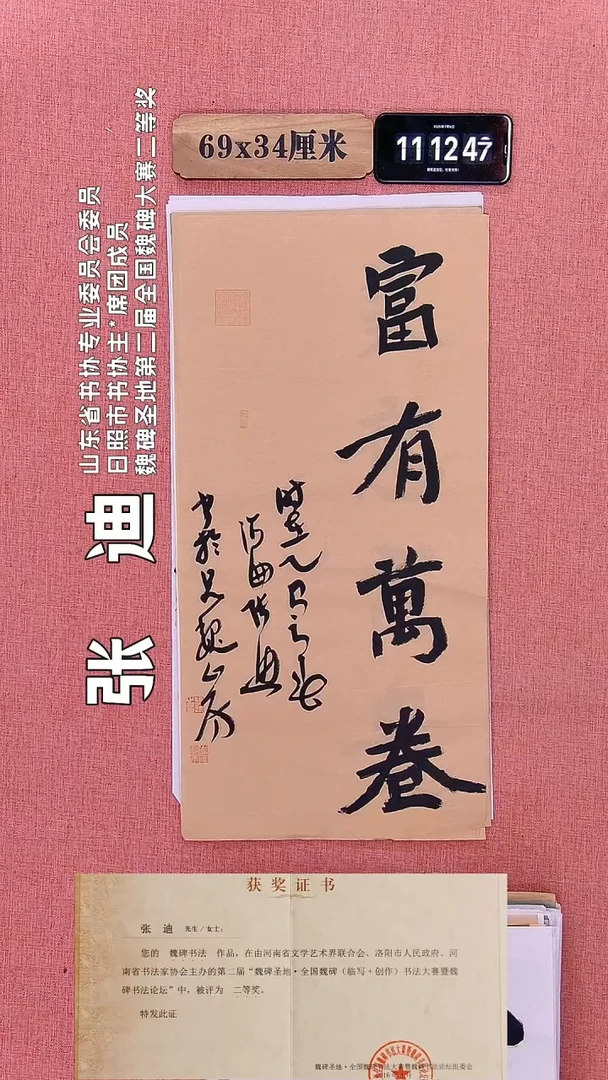 69x34厘米
11 12 47
山东省书协专业委员会委员
日照市书协主*席团成员
魏碑圣地第二届全国魏碑大赛二等奖
张 迪
富有萬卷
时在乙巳之春
海曲张迪
书于尚魏山房
获奖证书
张 迪 先生/女士：
您的 魏碑书法 作品，在由河南省文学艺术界联合会、洛阳市人民政府、河
南省书法家协会主办的第二届“魏碑圣地·全国魏碑（临写+创作）书法大赛暨魏
碑书法论坛”中，被评为 二等奖。
特发此证
魏碑圣地·全国魏碑书法大赛暨魏碑书法论坛组委会